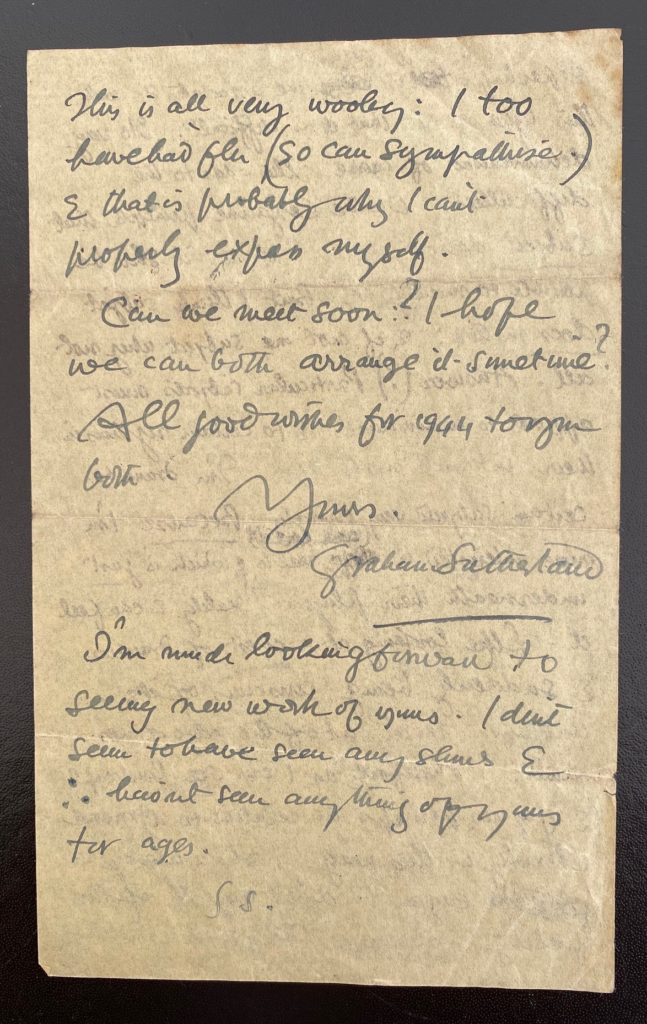 This is all very wooley: I too
have had 'flu (so can sympathise.)
& that is probably why I can't
properly express myself.
Can we meet soon:? I hope
we can both arrange it sometime?
All good wishes for 1944 to you
both
Yours.
Graham Sutherland
I'm much looking forward to
seeing new work of yours. I don't
seem to have seen any shows &
∴ hasn't seen anything of yours
for ages.
G.S.